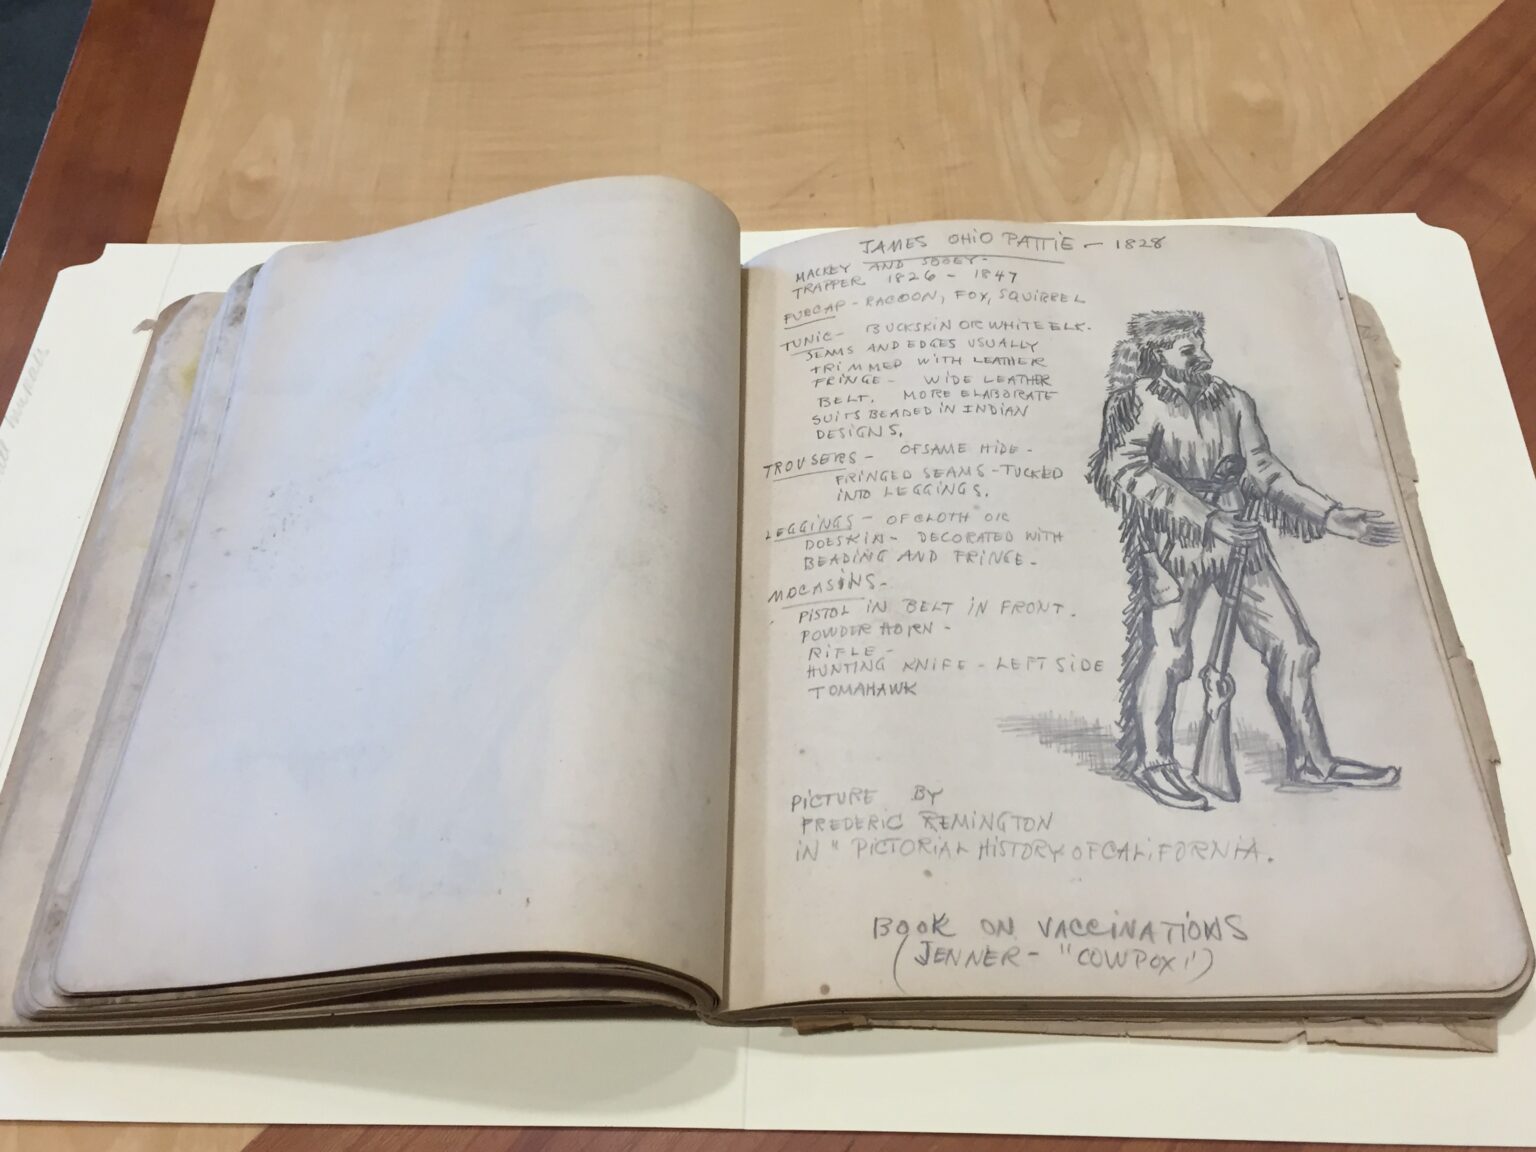 JAMES OHIO PATTIE - 1828
MACKEY AND SOOEY-
TRAPPER 1826 - 1847
FURCAP - RACOON, FOX, SQUIRREL
TUNIC - BUCKSKIN OR WHITE ELK.
SEAMS AND EDGES USUALLY
TRIMMED WITH LEATHER
FRINGE - WIDE LEATHER
BELT. MORE ELABORATE
SUITS BEADED IN INDIAN
DESIGNS.
TROUSERS - OF SAME HIDE -
FRINGED SEAMS - TUCKED
INTO LEGGINGS.
LEGGINGS - OF CLOTH OR
DOESKIN - DECORATED WITH
BEADING AND FRINGE.
MOCASINS -
PISTOL IN BELT IN FRONT.
POWDER HORN -
RIFLE -
HUNTING KNIFE - LEFT SIDE
TOMAHAWK
PICTURE BY
FREDERIC REMINGTON
IN "PICTORIAL HISTORY OF CALIFORNIA.
BOOK ON VACCINATIONS
(JENNER - "COWPOX")